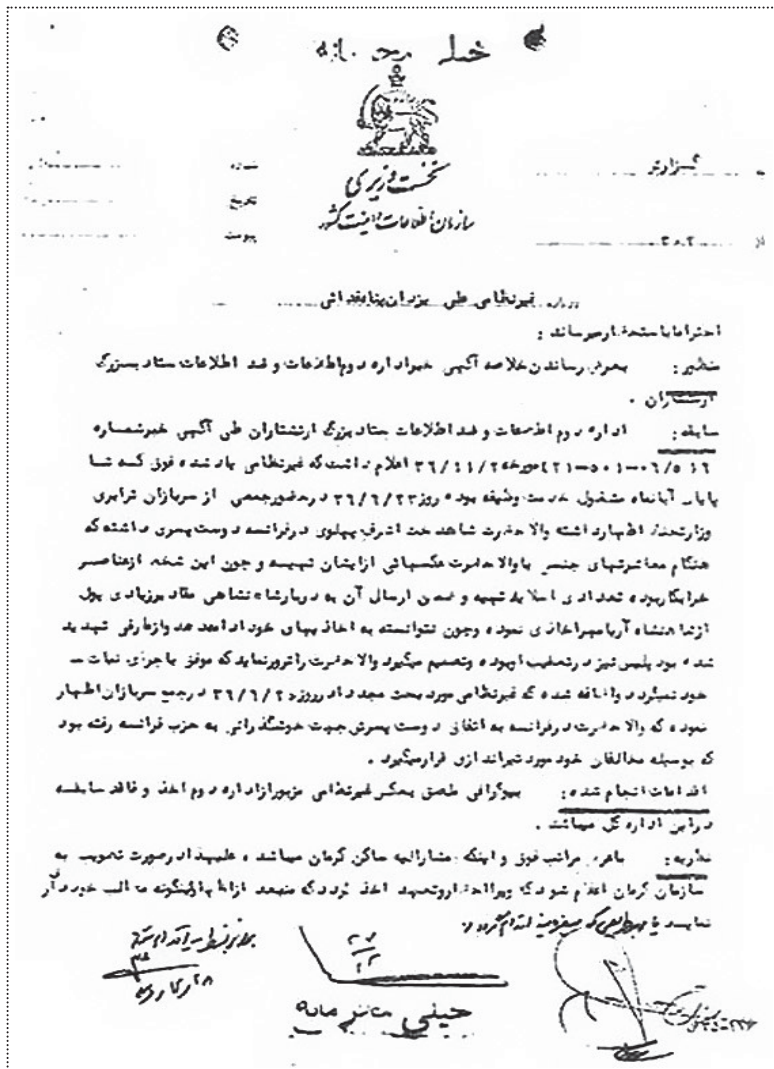 خیلی محرمانه
نخست وزیری
سازمان اطلاعات و امنیت کشور
گزارش
شماره
تاریخ
پیوست
از ۳۰۲
درباره غیرنظامی علی یزدان پناه فدائی
احتراما باستحضار میرساند :
منظور : بعرض رساندن خلاصه آگهی خبر اداره دوم اطلاعات و ضد اطلاعات ستاد بزرگ
ارتشتاران .
سابقه : اداره دوم اطلاعات و ضد اطلاعات ستاد بزرگ ارتشتاران طی آگهی خبر شماره
مورخه اعلام داشت که غیرنظامی یاد شده فوق که تا
پایان آبانماه مشغول خدمت وظیفه بوده روز ۳۶/۶/۲۳ در حضور جمعی از سربازان ترابری
وزارتجنگ اظهار داشته والا حضرت شاهدخت اشرف پهلوی در فرانسه دوست پسری داشته که
هنگام معاشرتهای جنسی با والاحضرت عکسهائی از ایشان تهیه و چون این شخص از عناصر
خرابکار بوده تعدادی اسلاید تهیه و ضمن ارسال آن به دربار شاهنشاهی مقادیر زیادی پول
از شاهنشاه آریامهر اخاذی نموده و چون نتوانسته به اخاذیهای خود ادامه دهد و از طرفی تهدید
شده بود پلیس نیز در تعقیب او بوده و تصمیم میگیرد والاحضرت را ترور نماید که موفق باجرای نیات
خود نمیگردد و اضافه شده که غیرنظامی مورد بحث مجددا در روز ۳۶/۶/۲۵ در جمع سربازان اظهار
نموده که والاحضرت در فرانسه به اتفاق دوست پسرش جهت خوشگذرانی به حزب فرانسه رفته بود
که بوسیله مخالفان خود مورد تیراندازی قرار میگیرد .
اقدامات انجام شده : بیوگرافی ملصق بعکس غیرنظامی مزبور از اداره دوم اخذ و فاقد سابقه
در این اداره کل میباشد .
نظریه : باعرض مراتب فوق و اینکه مشارالیه ساکن کرمان میباشد ، علیهذا در صورت تصویب به
سازمان کرمان اعلام شود که ویرا احضار و تعهد اخذ گردد که متعهد از اظهار اینگونه مطالب خودداری
نمایند یا بهر طریقی که میفرمایند اقدام گردد
خیلی محرمانه